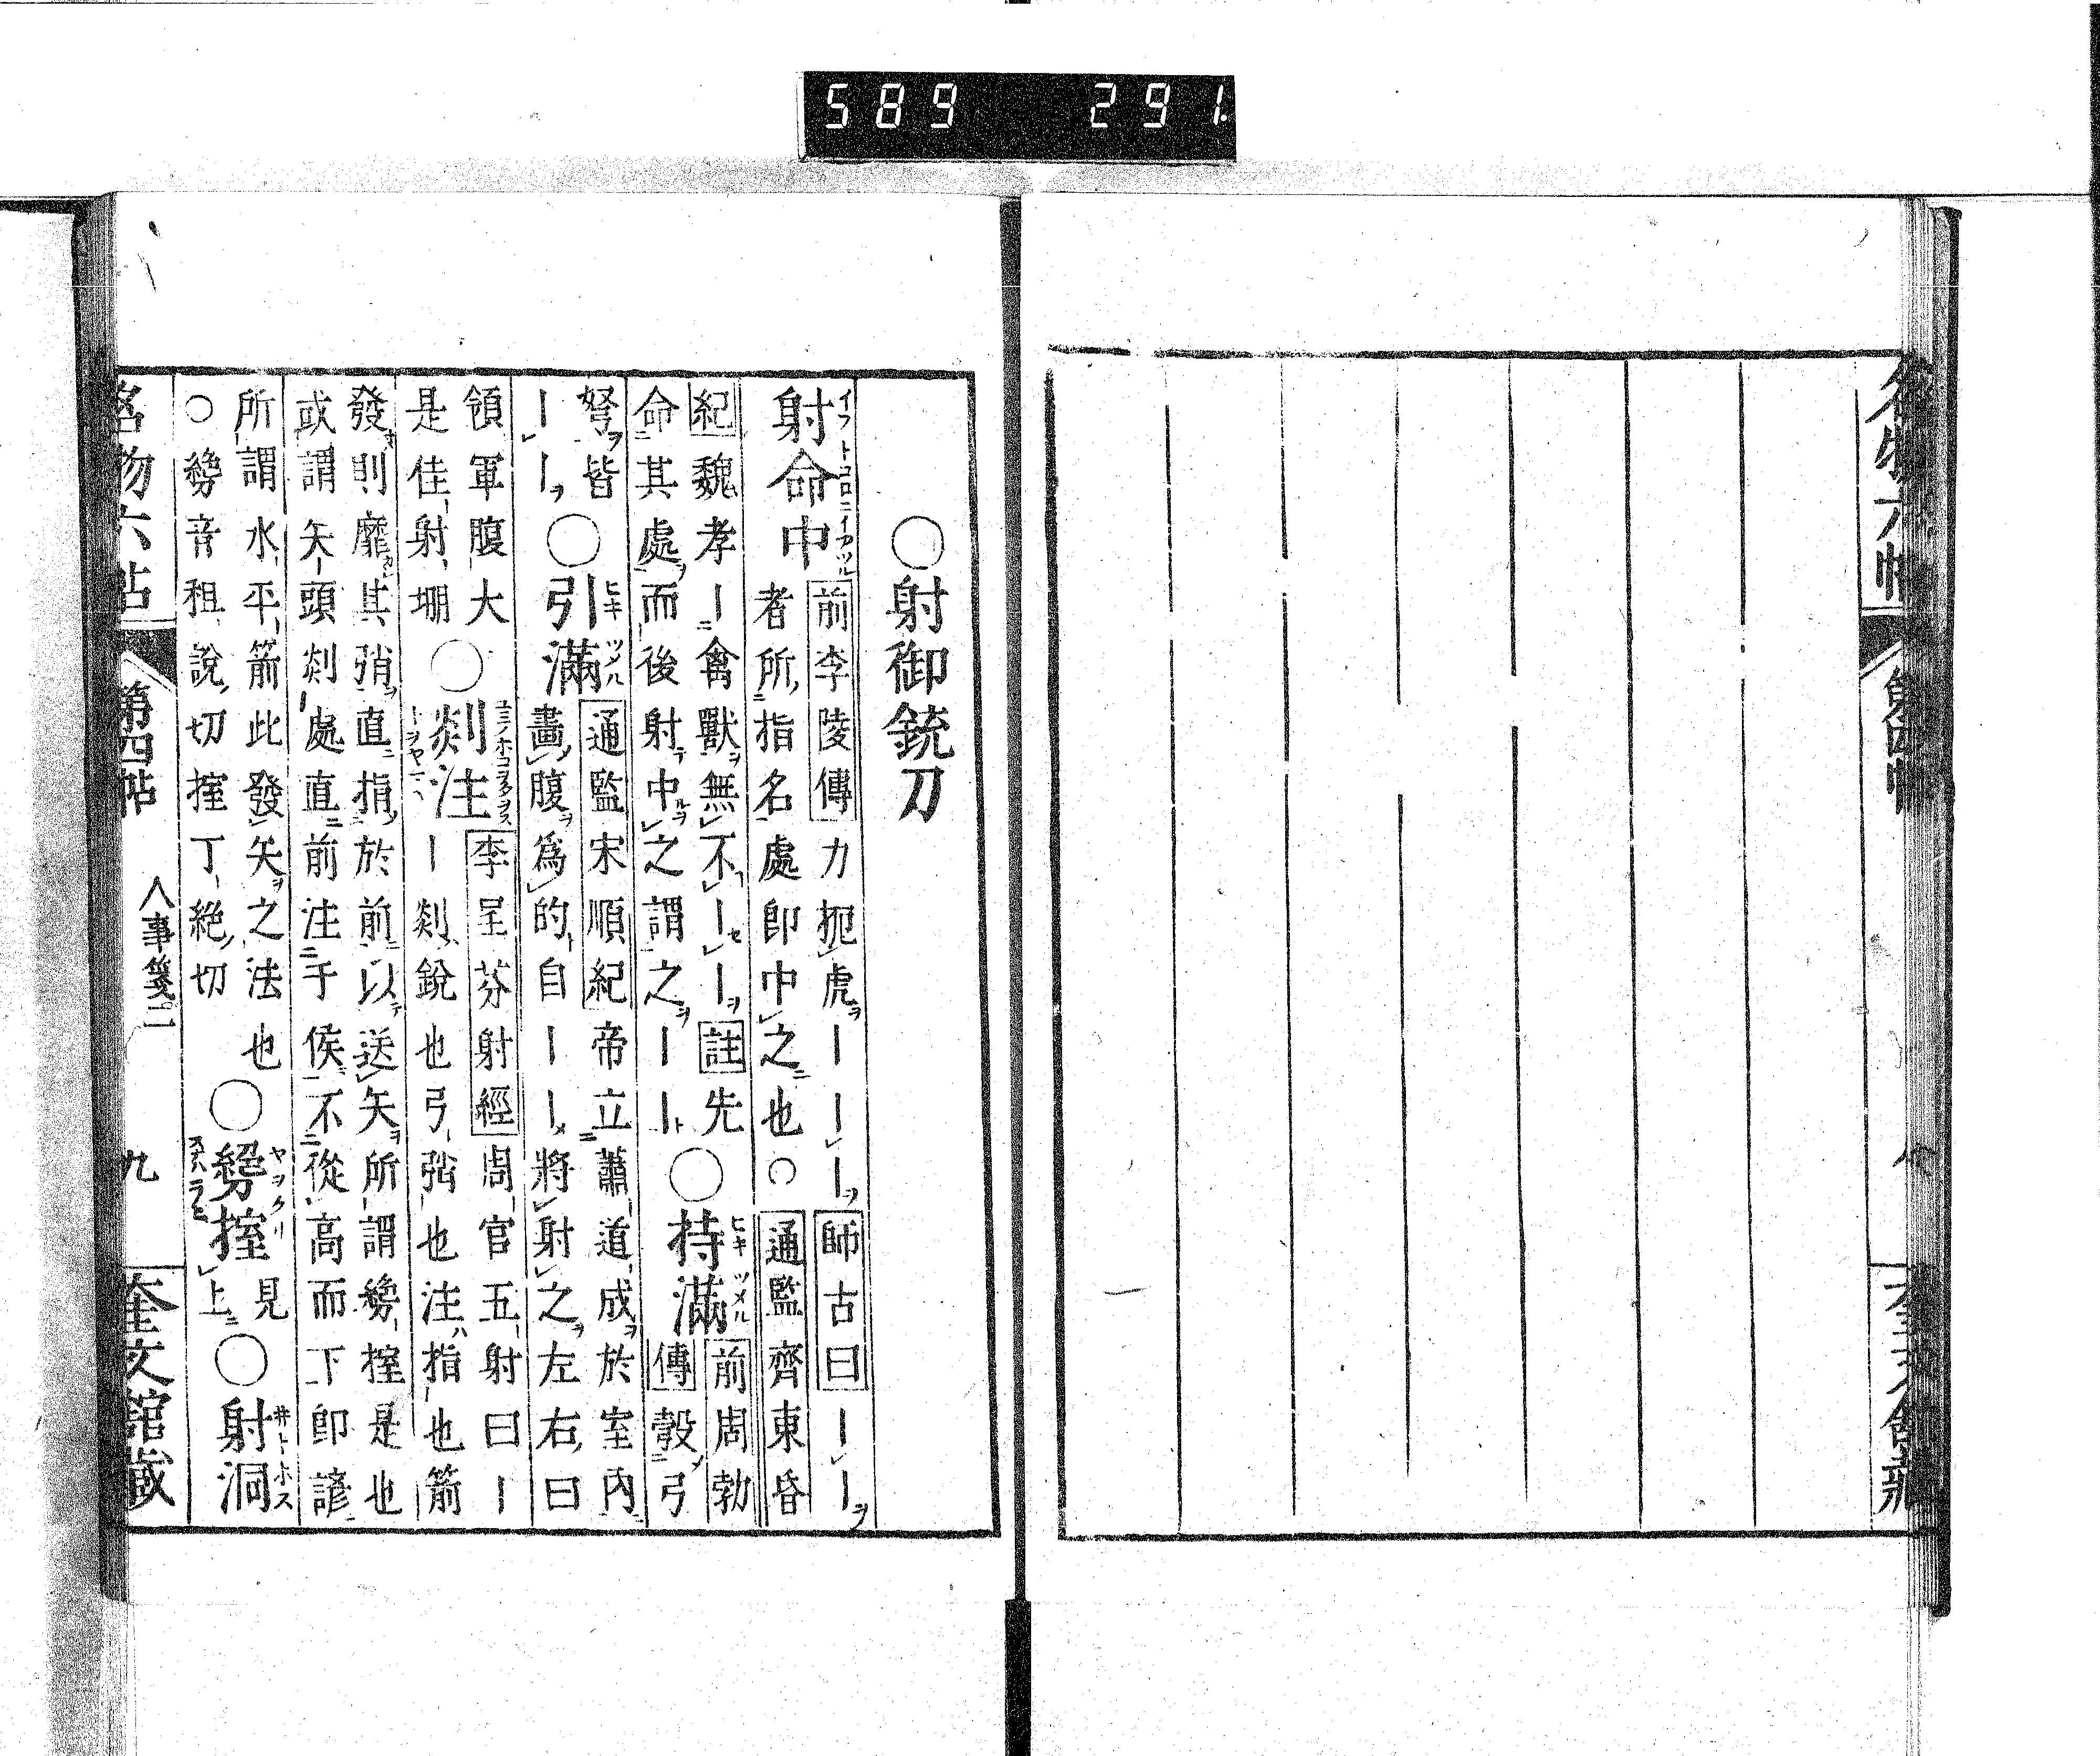 589 291
名物六帖 第四帖 奎文館藏
○射御銃刀
射命中 前李陵傳 力扼虎ーーー 師古曰 ーー
イフトコロニイアツル
者所指名處即中之也○ 通監齊東昏
紀 魏孝ー禽獸無不ーー 註 先
命其處而後射中之謂之ーー
○持滿 前周勃傳 彀弓
ヒキツメル
弩皆ーー
○引滿 通監宋順紀 帝立蕭道成於室内
ヒキツメル
畫腹爲的自ーー將射之左右曰
領軍腹大是佳射堋
○剡注 李呈芬射經 周官五射曰ー
ー剡銳也弓弰也注指也箭
發則靡其弰直指於前以送矢所謂㧍㨖是也
或謂矢頭剡處直前注于侯不從高而下即諺
所謂水平箭此發矢之法也
○㧍音租說切㨖丁絶切
○㧍㨖 見上
ヤヲクリ
○射洞
井トホス
名物六帖 第四帖 人事箋二 九 奎文館藏